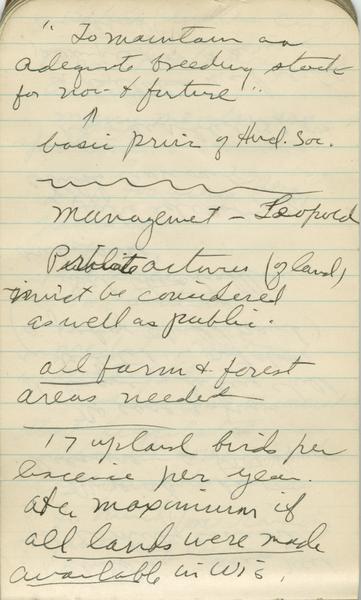 "To maintain an
adequate breeding stock
for now & furture"
basic prin of Aud. Soc.
Management - Leopold
Private actures (of land)
must be considered
as well as public.
all farm & forest
areas needed
17 upland birds per
liscence per year.
at a maximum if
all lands were made
available in Wis.